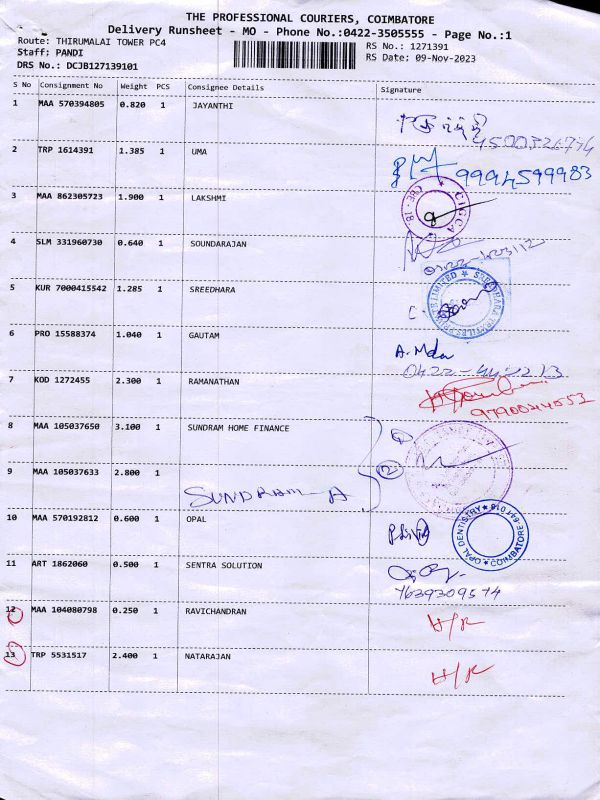 THE PROFESSIONAL COURIERS, COIMBATORE
Delivery Runsheet - MO - Phone No.:0422-3505555 - Page No.:1
Route: THIRUMALAI TOWER PC4 RS No.: 1271391
Staff: PANDI RS Date: 09-Nov-2023
DRS No.: DCJB127139101
S No Consignment No Weight PCS Consignee Details Signature
1 MAA 570394805 0.820 1 JAYANTHI
2 TRP 1614391 1.385 1 UMA
9994599983
3 MAA 862305723 1.900 1 LAKSHMI
4 SLM 331960730 0.640 1 SOUNDARAJAN
5 KUR 7000415542 1.285 1 SREEDHARA
6 PRO 15588374 1.040 1 GAUTAM
7 KOD 1272455 2.300 1 RAMANATHAN
8 MAA 105037650 3.100 1 SUNDRAM HOME FINANCE
①
9 MAA 105037633 2.800 1
②
SUNDRAM-A
10 MAA 570192812 0.600 1 OPAL
OPAL DENTISTRY COIMBATORE
11 ART 1862060 0.500 1 SENTRA SOLUTION
7639309574
12 MAA 104080798 0.250 1 RAVICHANDRAN H/R
13 TRP 5531517 2.400 1 NATARAJAN H/R